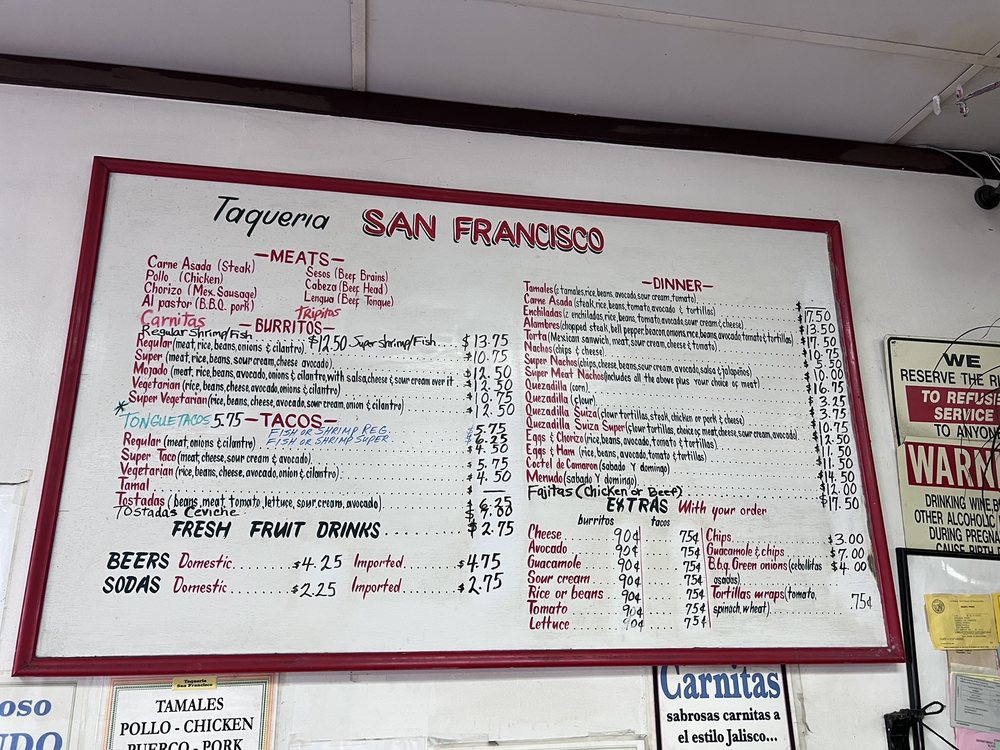 Taqueria SAN FRANCISCO
—MEATS—
Carne Asada (Steak)
Pollo (Chicken)
Chorizo (Mex. Sausage)
Al pastor (B.B.Q. pork)
Carnitas
Sesos (Beef Brains)
Cabeza (Beef Head)
Lengua (Beef Tongue)
Tripitas
—BURRITOS—
Regular Shrimp/Fish $12.50 Super shrimp/Fish... $13.75
Regular (meat, rice, beans, onions & cilantro) $10.75
Super (meat, rice, beans, sour cream, cheese avocado) $12.50
Mojado (meat, rice, beans, avocado, onions & cilantro, with salsa, cheese & sour cream over it $12.50
Vegetarian (rice, beans, cheese, avocado, onions & cilantro) $10.75
Super Vegetarian (rice, beans, cheese, avocado, sour cream, onion & cilantro) $12.50
* TONGUE TACOS 5.75 —TACOS—
FISH OR SHRIMP REG. $5.75
FISH OR SHRIMP SUPER $6.25
Regular (meat, onions & cilantro) $4.50
Super Taco (meat, cheese, sour cream & avocado) $5.75
Vegetarian (rice, beans, cheese, avocado, onion & cilantro) $4.50
Tamal
Tostadas (beans, meat, tomato, lettuce, sour cream, avocado)
Tostadas Ceviche
FRESH FRUIT DRINKS $2.75
BEERS Domestic $4.25 Imported $4.75
SODAS Domestic $2.25 Imported $2.75
—DINNER—
Tamales (2 tamales, rice, beans, avocado, sour cream, tomato) $17.50
Carne Asada (steak, rice, beans, tomato, avocado & tortillas) $13.50
Enchiladas (2 enchiladas, rice, beans, tomato, avocado, sour cream & cheese) $17.50
Alambres (chopped steak, bell pepper, beacon, onions, rice, beans, avocado, tomato & tortillas)
Torta (Mexican sanwich, meat, sour cream, cheese & tomato) 10.75
Nachos (chips & cheese) 5.50
Super Nachos (chips, cheese, beans, sour cream, avocado, salsa & jalapeños) 10.00
Super Meat Nachos (includes all the above plus your choice of meat) $16.75
Quezadilla (corn) $3.25
Quezadilla (flour) $3.75
Quezadilla Suiza (flour tortillas, steak, chicken or pork & cheese) $10.75
Quezadilla Suiza Super (flour tortillas, choice of meat, cheese, sour cream, avocado) $12.50
Eggs & Chorizo (rice, beans, avocado, tomato & tortillas) $11.50
Eggs & Ham (rice, beans, avocado, tomato & tortillas) $11.50
Coctel de Camaron (sabado Y domingo) $14.50
Menudo (sabado Y domingo) $12.00
Fajitas (Chicken or Beef) $17.50
EXTRAS With your order
burritos tacos
Cheese 90¢ 75¢
Avocado 90¢ 75¢
Guacamole 90¢ 75¢
Sour cream 90¢ 75¢
Rice or beans 90¢ 75¢
Tomato 90¢ 75¢
Lettuce 90¢ 75¢
Chips $3.00
Guacamole & chips $7.00
B.b.q. Green onions (cebollitas $4.00
asadas)
Tortillas wraps (tomato,
spinach, wheat) .75¢
WE
RESERVE THE RI
TO REFUSE
SERVICE
TO ANYON
WARN
DRINKING WINE, B
OTHER ALCOHOLIC
DURING PREGNA
CAUSE BIRTH
oso
UDO
Taqueria
San Francisco
TAMALES
POLLO - CHICKEN
PUERCO - PORK
Carnitas
sabrosas carnitas a
el estilo Jalisco...